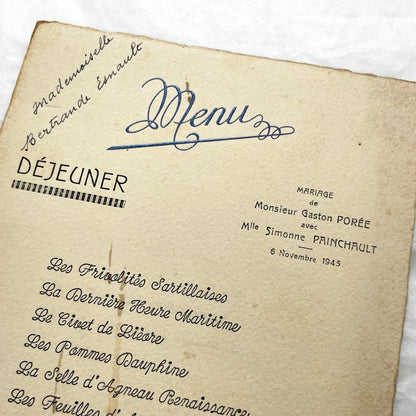 Mademoiselle
Bertrande Enault
Menu
DÉJEUNER
MARIAGE
de
Monsieur Gaston PORÉE
avec
Mlle Simonne PAINCHAULT
6 Novembre 1945
Les Frivolités Sartillaises
La Dernière Heure Maritime
Le Civet de Lièvre
Les Pommes Dauphine
La Selle d'Agneau Renaissance
Les Feuilles